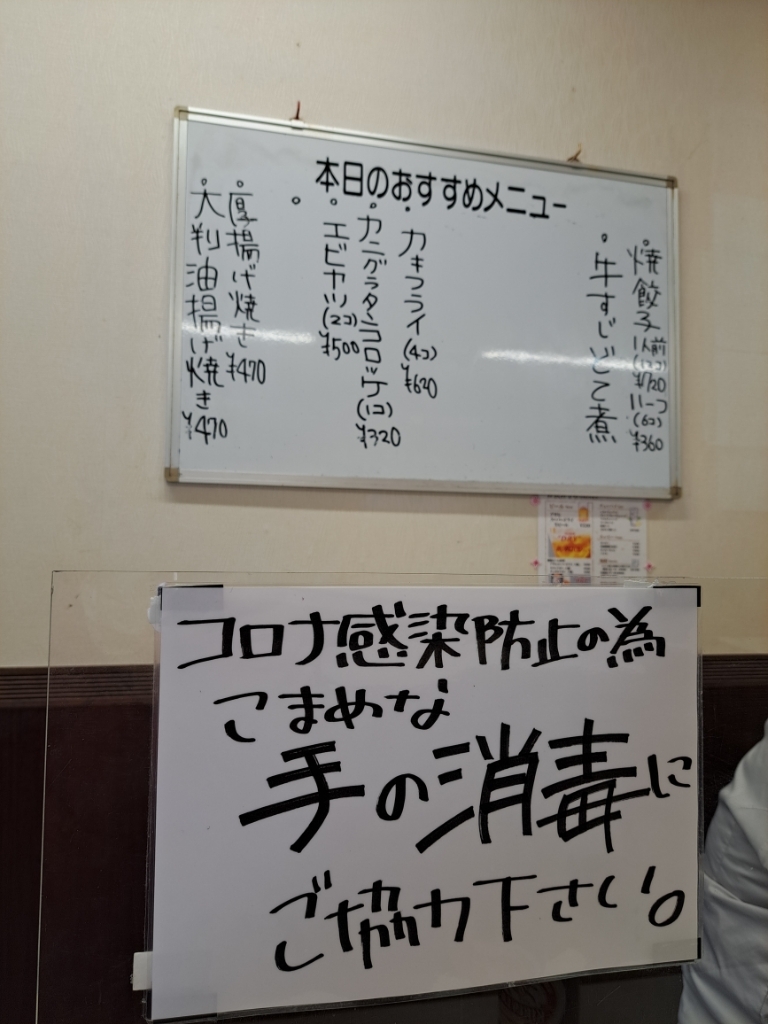 本日のおすすめメニュー
焼餃子
1人前
(12コ)
¥720
ハーフ
(6コ)
¥360
牛すじどて煮
カキフライ
(4コ)
¥620
カニグラタンコロッケ
(1コ)
¥320
エビカツ
(2コ)
¥500
厚揚げ焼き
¥470
大判油揚げ焼き
¥470
コロナ感染防止の為
こまめな
手の消毒に
ご協力下さい。